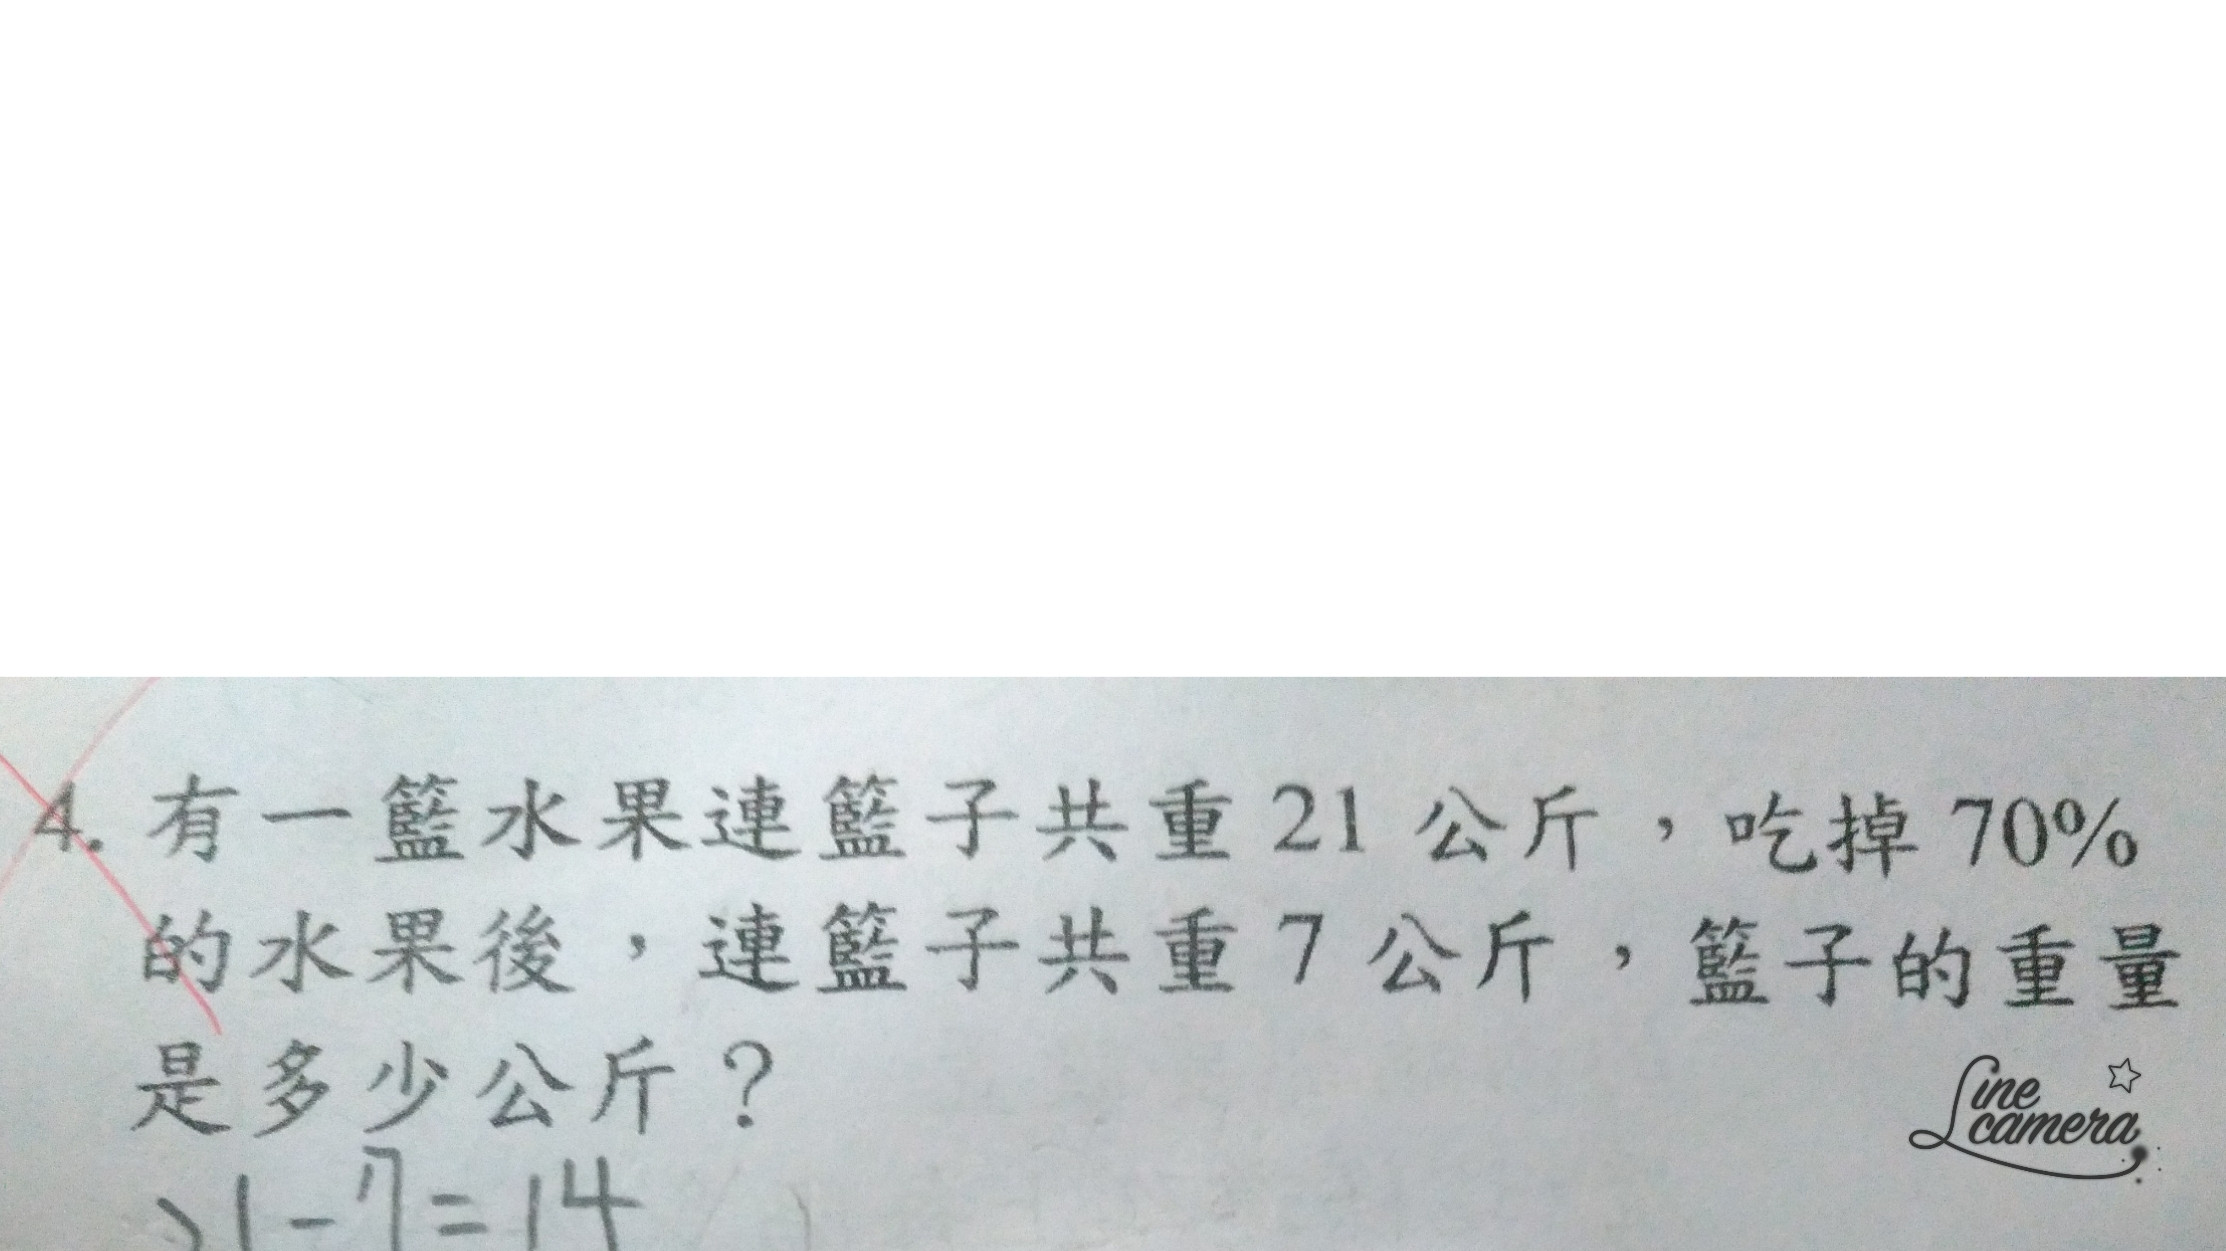 4. 有一籃水果連籃子共重 21 公斤，吃掉 70%
的水果後，連籃子共重 7 公斤，籃子的重量
是多少公斤？
21-7=14
Line
camera